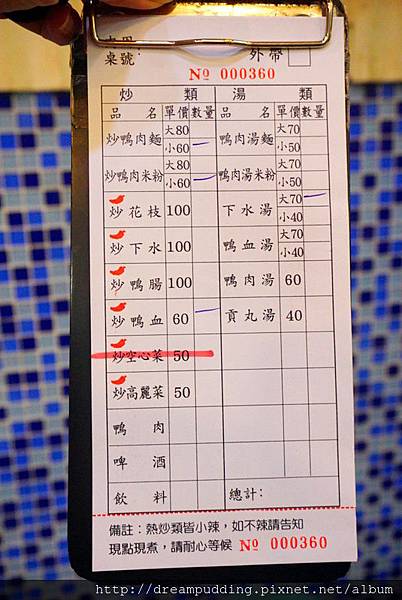 桌號： 外帶
№ 000360
炒 類 湯 類
品 名 單價 數量 品 名 單價 數量
炒鴨肉麵 大80 小60 鴨肉湯麵 大70 小50
炒鴨肉米粉 大80 小60 鴨肉湯米粉 大70 小50
炒花枝 100 下水湯 大70 小40
炒下水 100 鴨血湯 大70 小40
炒鴨腸 100 鴨肉湯 60
炒鴨血 60 貢丸湯 40
炒空心菜 50
炒高麗菜 50
鴨肉
啤酒
飲料 總計：
備註：熱炒類皆小辣，如不辣請告知
現點現煮，請耐心等候 № 000360
http://dreampudding.pixnet.net/album